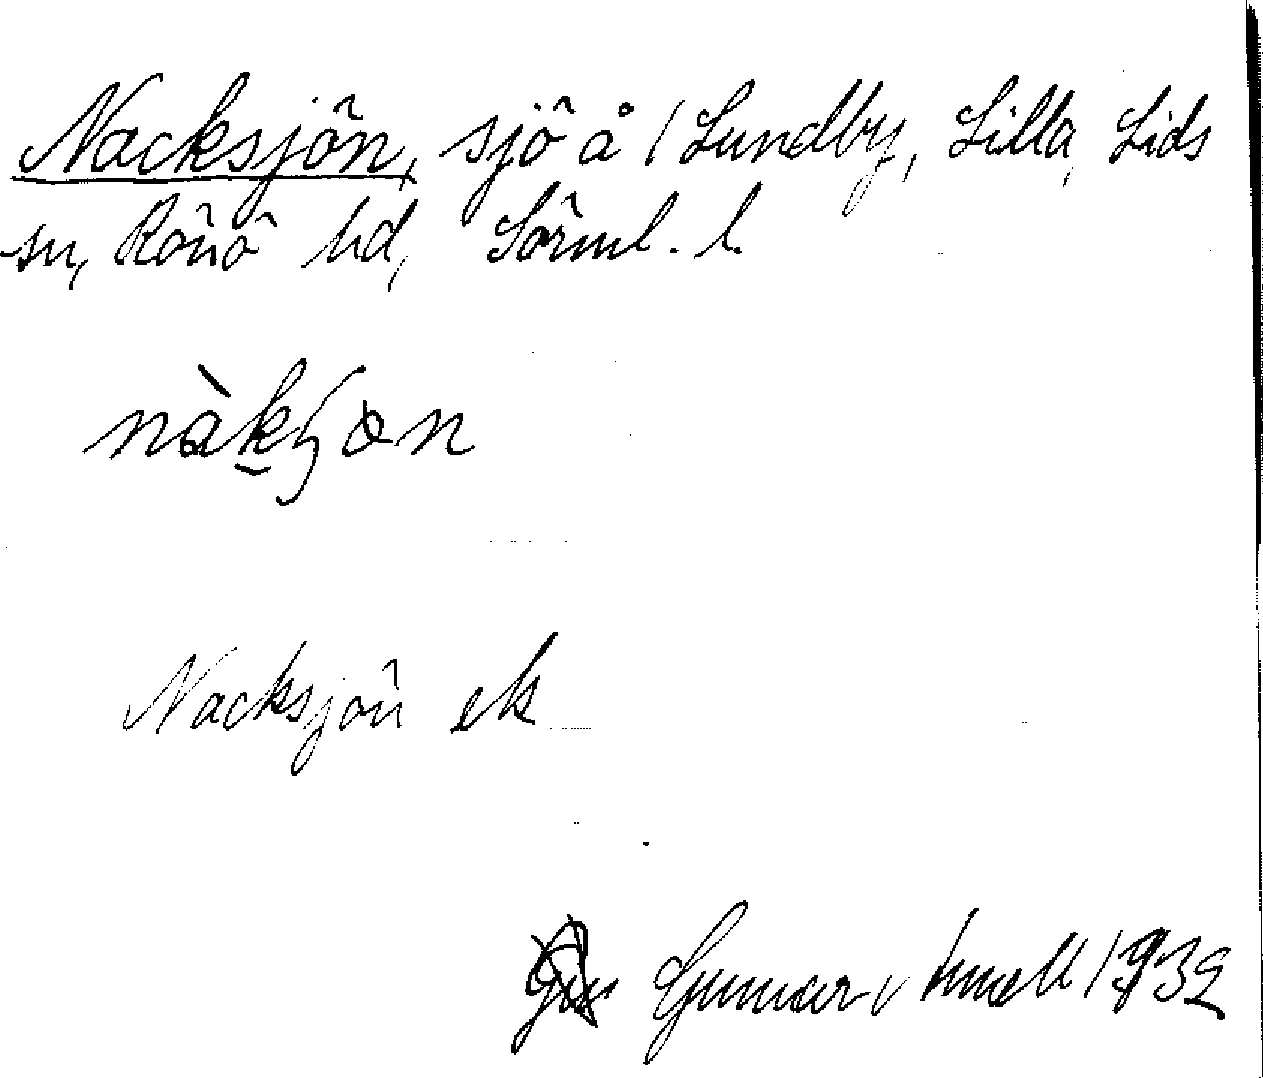 Nacksjön, sjö å / Lundby, Lilla, Lids
sn, Rönö hd, Sörml. l.
nàkʂon
Nacksjön ek
Gunnar 1932